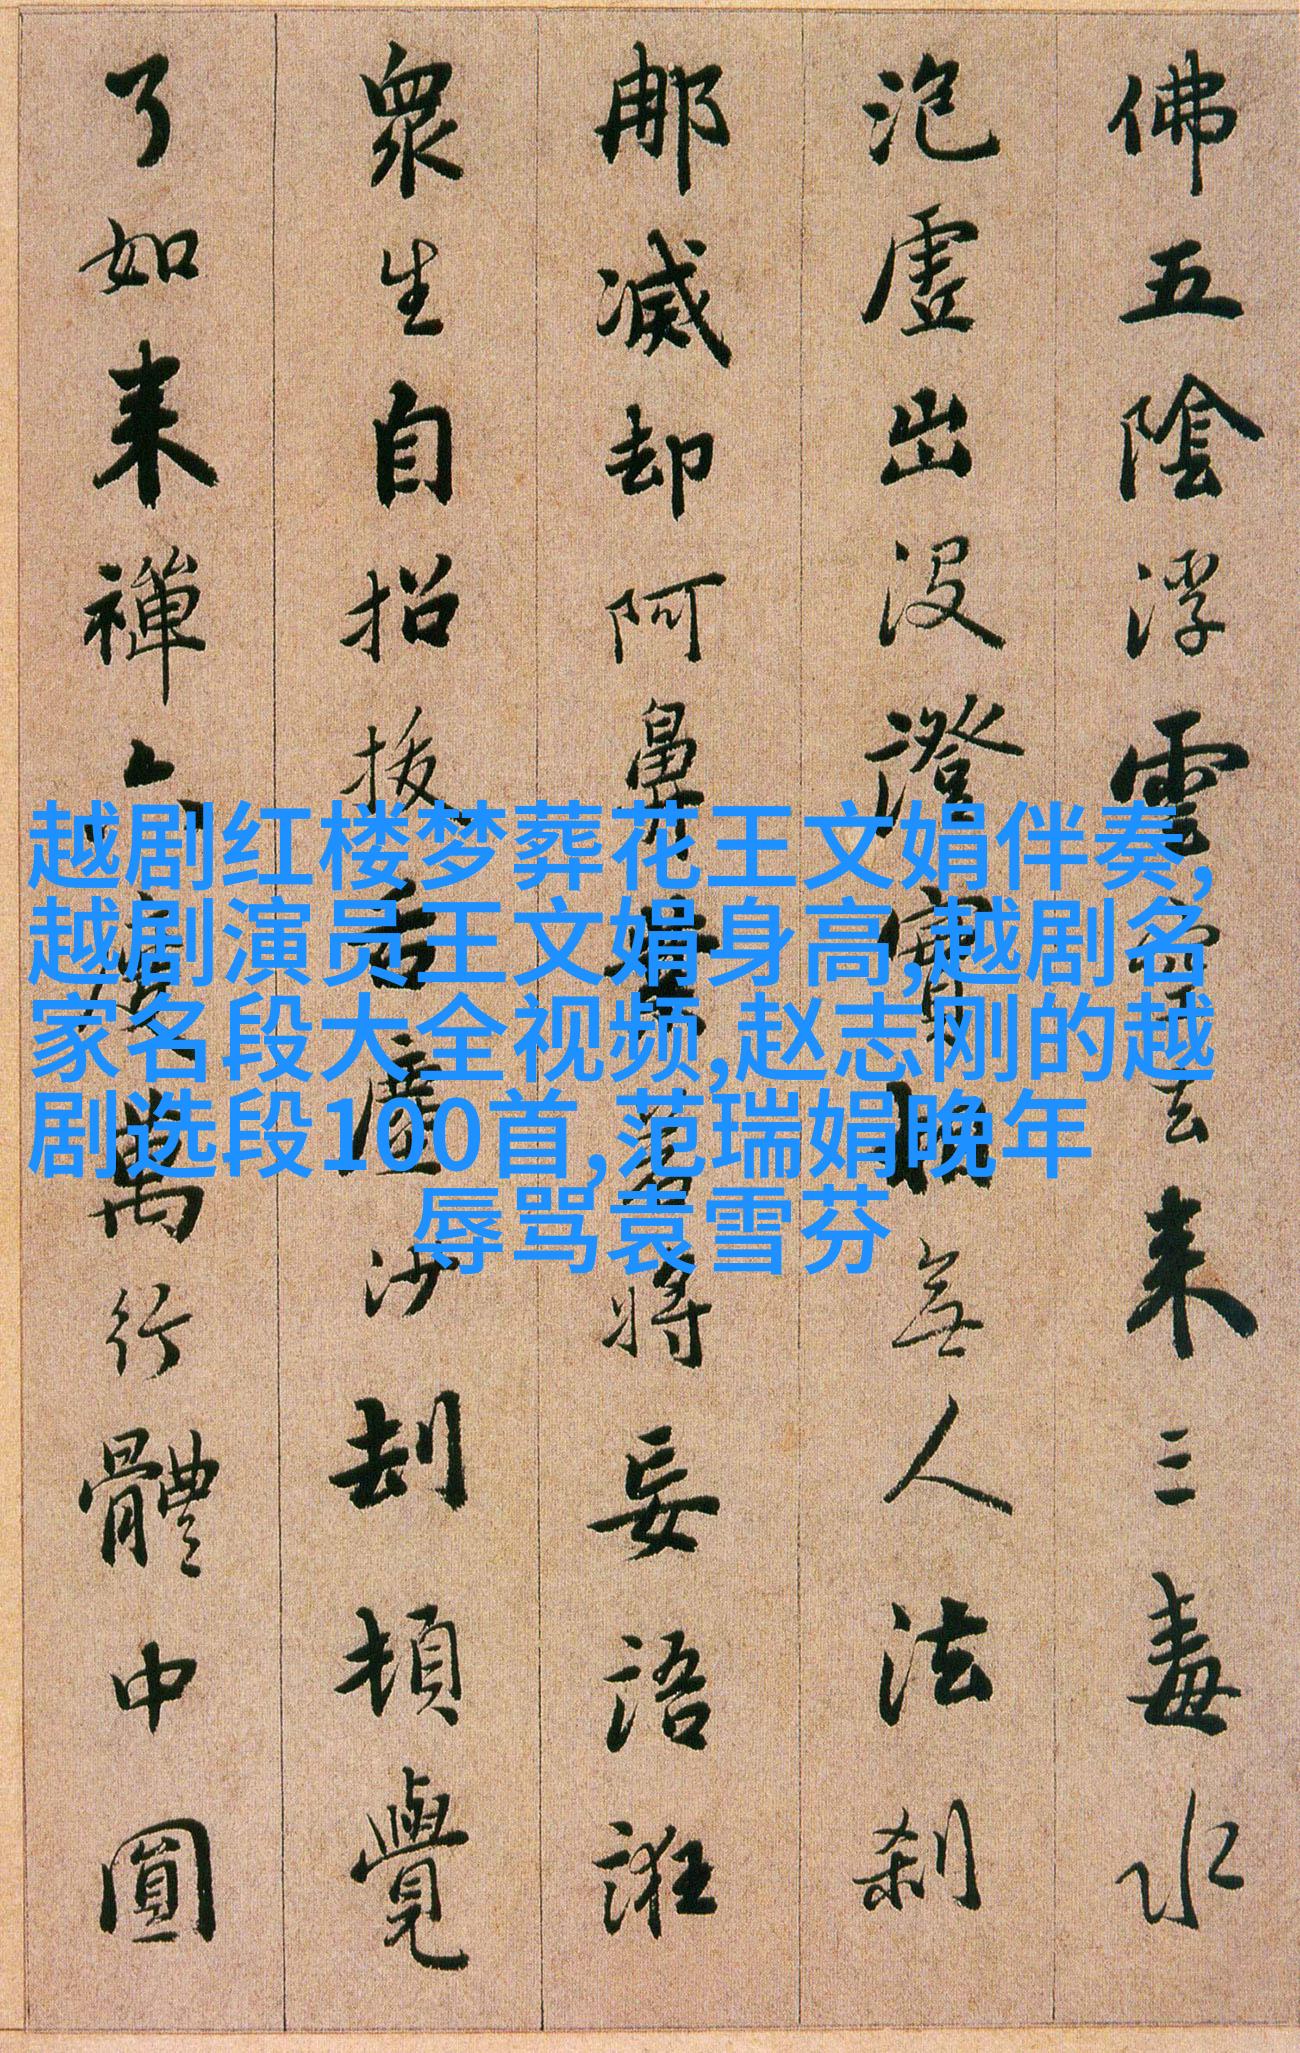 佛五陰浮雲空去来三毒水
泡虛出沒證實相無人法刹
那滅却阿鼻業若將妄語誑
衆生自招拔舌塵沙刧頓覺
了如来禪六度萬行體中圓
越剧红楼梦葬花王文娟伴奏,
越剧演员王文娟身高,越剧名
家名段大全视频,赵志刚的越
剧选段100首,范瑞娟晚年
辱骂袁雪芬